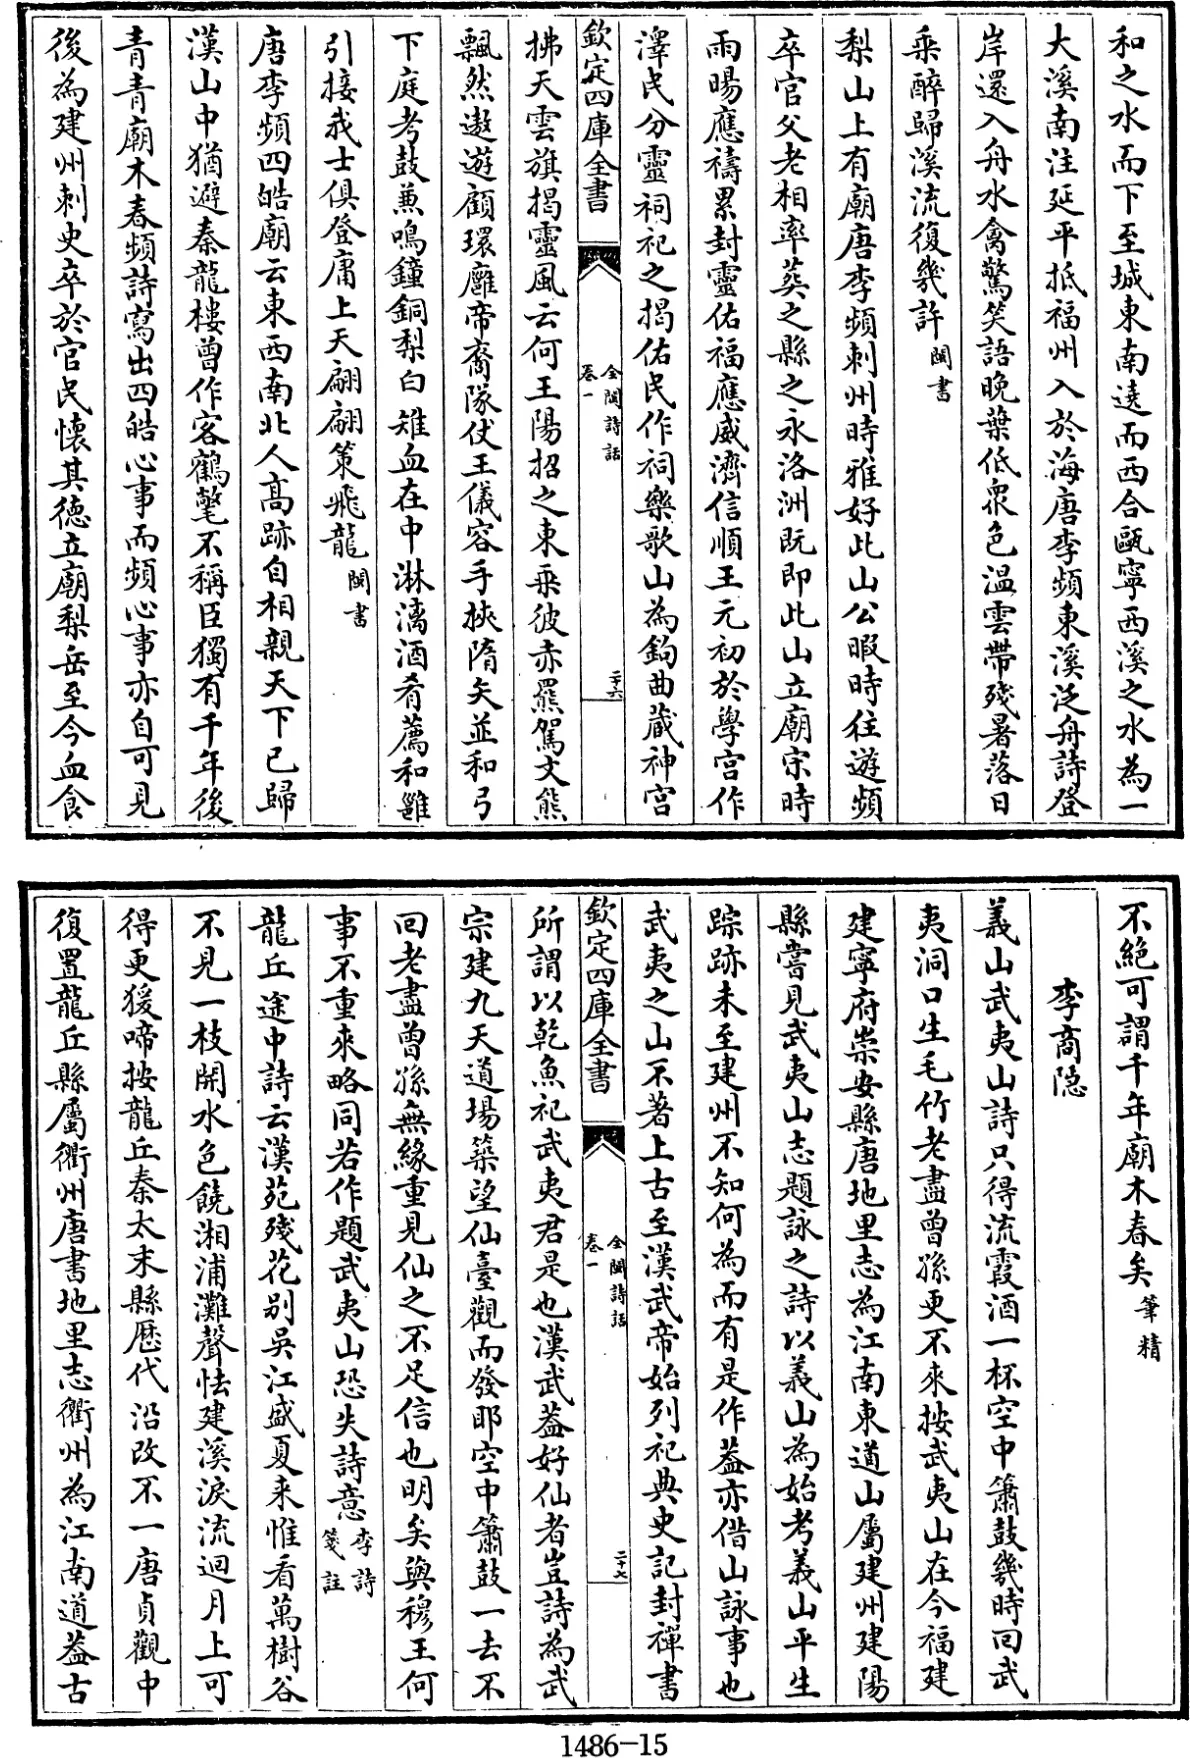 和之水而下至城東南遶而西合甌寧西溪之水為一
大溪南注延平抵福州入於海唐李頻東溪泛舟詩登
岸還入舟水禽驚笑語晚葉低衆色溫雲帶殘暑落日
乘醉歸溪流復幾許閩書
梨山上有廟唐李頻刺州時雅好此山公暇時往遊頻
卒官父老相率葬之縣之永洛洲旣即此山立廟宗時
雨暘應禱累封靈佑福應威濟信順王元初於學宮作
澤民分靈祠祀之揭佑民作祠樂歌山為鈎曲蕆神宮
欽定四庫全書
全閩詩話
卷一
二十六
拂天雲旗揭靈風云何王陽招之東乘彼赤羆駕文熊
飄然遨遊顧環廱帝裔隊仗王儀容手挾隋矢並和弓
下庭考鼓兼鳴鐘銅梨白雉血在中淋漓酒肴薦和雝
引接我士俱登庸上天翩翩策飛龍閩書
唐李頻四皓廟云東西南北人高跡自相親天下已歸
漢山中猶避秦龍樓曾作客鶴氅不稱臣獨有千年後
青青廟木春頻詩寫出四皓心事而頻心事亦自可見
後為建州刺史卒於官民懷其德立廟梨岳至今血食
不絕可謂千年廟木春矣筆精
李商隐
義山武夷山詩只得流霞酒一杯空中簫鼓幾時回武
夷洞口生毛竹老盡曾孫更不來按武夷山在今福建
建寧府崇安縣唐地里志為江南東道山屬建州建陽
縣嘗見武夷山志題詠之詩以義山為始考義山平生
踪跡未至建州不知何為而有是作蓋亦借山詠事也
武夷之山不著上古至漢武帝始列祀典史記封禪書
欽定四庫全書
全閩詩話
卷一
二十七
所謂以乾魚祀武夷君是也漢武蓋好仙者豈詩為武
宗建九天道場築望仙臺觀而發耶空中簫鼓一去不
回老盡曾孫無緣重見仙之不足信也明矣與穆王何
事不重來略同若作題武夷山恐失詩意李詩箋註
龍丘途中詩云漢苑殘花别吳江盛夏來惟看萬樹谷
不見一枝開水色饒湘浦灘聲怯建溪淚流迴月上可
得更猨啼按龍丘秦太末縣歷代沿改不一唐貞觀中
復置龍丘縣屬衢州唐書地里志衢州為江南道蓋古
1486-15